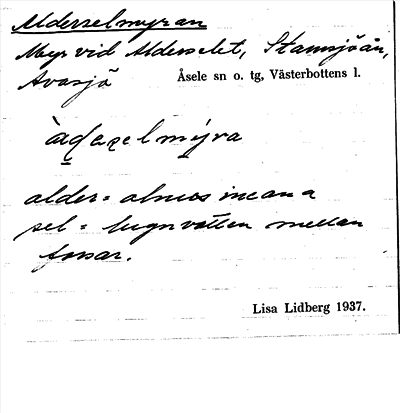 Alderselmyran
Myr vid Alderselet, Stamsjöån,
Avasjö
Åsele sn o. tg, Västerbottens l.
àḍạzelmýra
alder = alnus incana
sel = lugnvatten mellan
forsar.
Lisa Lidberg 1937.